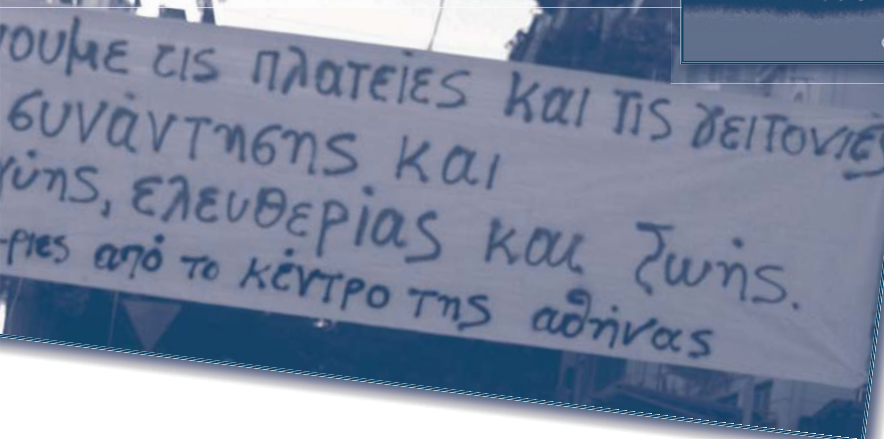 τις πλατείες και τις γειτονιές
συνάντησης και
ελευθερίας και ζωής.
από το κέντρο της αθήνας